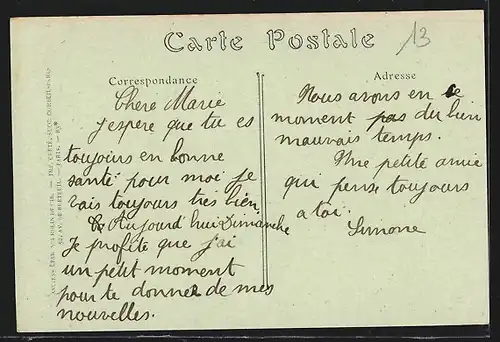 Carte Postale
13
Correspondance
Chere Marie
j'espere que tu es
toujours en bonne
santé pour moi je
vais toujours très bien.
Aujourd'hui Dimanche
Je profite que j'ai
un petit moment
pour te donner de mes
nouvelles.
Adresse
Nous avons en ce
moment pas du bien
mauvais temps.
Une petite amie
qui pense toujours
a toi.
Simone